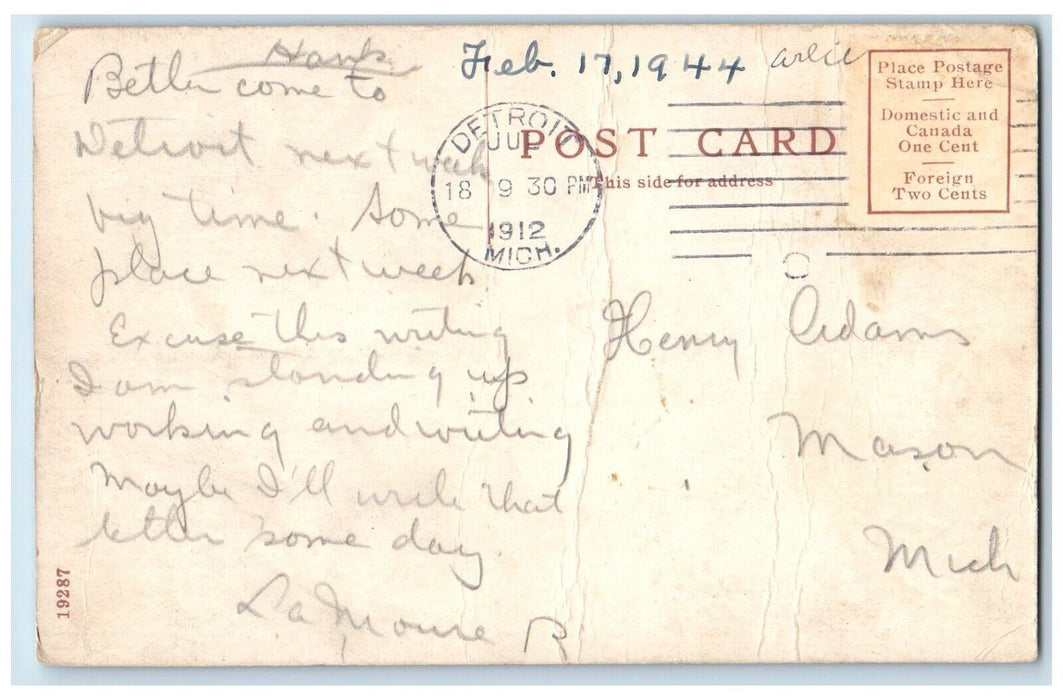 Hank
Better come to
Detroit next week
big time. Some
place next week
Excuse this writing
I am standing up
working and writing
Maybe I'll write that
letter some day.
LaMoure R
19287
Feb. 17, 1944
DETROIT
JUL
18 9 30 PM
1912
MICH.
POST CARD
This side for address
Place Postage
Stamp Here
Domestic and
Canada
One Cent
Foreign
Two Cents
Henry Adams
Mason
Mich